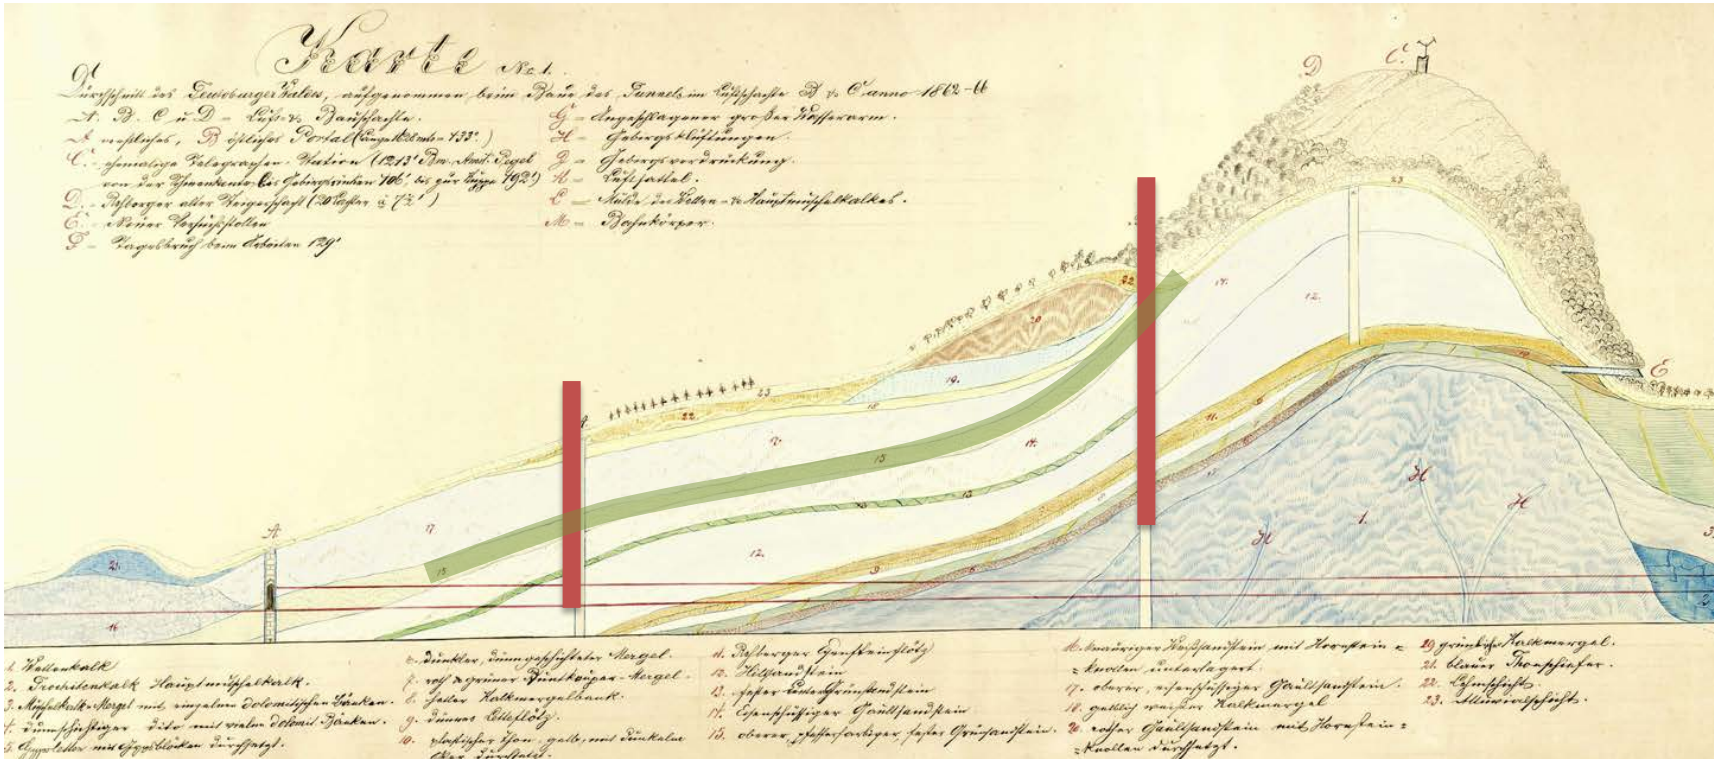 Karte No 1.
Durchschnitt des Teutoburger Waldes, aufgenommen beim Baue des Tunnels im Luftschachte B & C anno 1862-66
A. B. C u D = Luft- & Bauschachte.
A westliches, B östliches Portal
C. ehemalige Telegraphen-Station (1213'
von der bis 106' bis zur Kuppe 192')
D. Rehberger alter
E. Neuer Versuchstollen
F = Tagesbruch beim Arbeiten 129'
G = Angeschlagener großer Wasserarm.
H = Gebirgsklüftungen.
J = Gebirgsverdrückung.
K = Luftsattel.
L = Mulde, des Wellen- & Hauptmuschelkalkes.
M = Bahnkörper.
D C.
23
14.
12.
22
20
19.
18
23
22
17.
15
14.
13
11.
9
6
10
E
A
17
15
12.
9
6
H
H
H
1.
21.
16
3.
2
1. Wellenkalk
2. Trochitenkalk Hauptmuschelkalk.
3. Muschelkalk-Mergel mit einzelnen dolomitischen Bänken.
4. dünnschichtiger dito mit vielen dolomit. Bänken.
5. mit Gypsblöcken durchsetzt.
6. dunkler, dünngeschichteter Mergel.
7. roth & grüner Mergel.
8. heller Kalkmergelbank.
9. dünnes Lettenflötz.
10. plastischer Thon, gelb, mit dunkelm
durchsetzt.
11. Rehberger
12. Hilssandstein
13. fester Grünsandstein
14. Eisenschüssiger Gaultsandstein
15. oberer, fester Grünsandstein.
16. mit Hornstein=
=knollen unterlagert.
17. oberer, eisenschüssiger Gaultsandstein.
18. gelblich weißer Kalkmergel
20. rother Gaultsandstein mit Hornstein=
=knollen durchsetzt.
19 Kalkmergel.
21. blauer Thonschiefer.
22. Lehmschicht
23. Alluvialschicht.